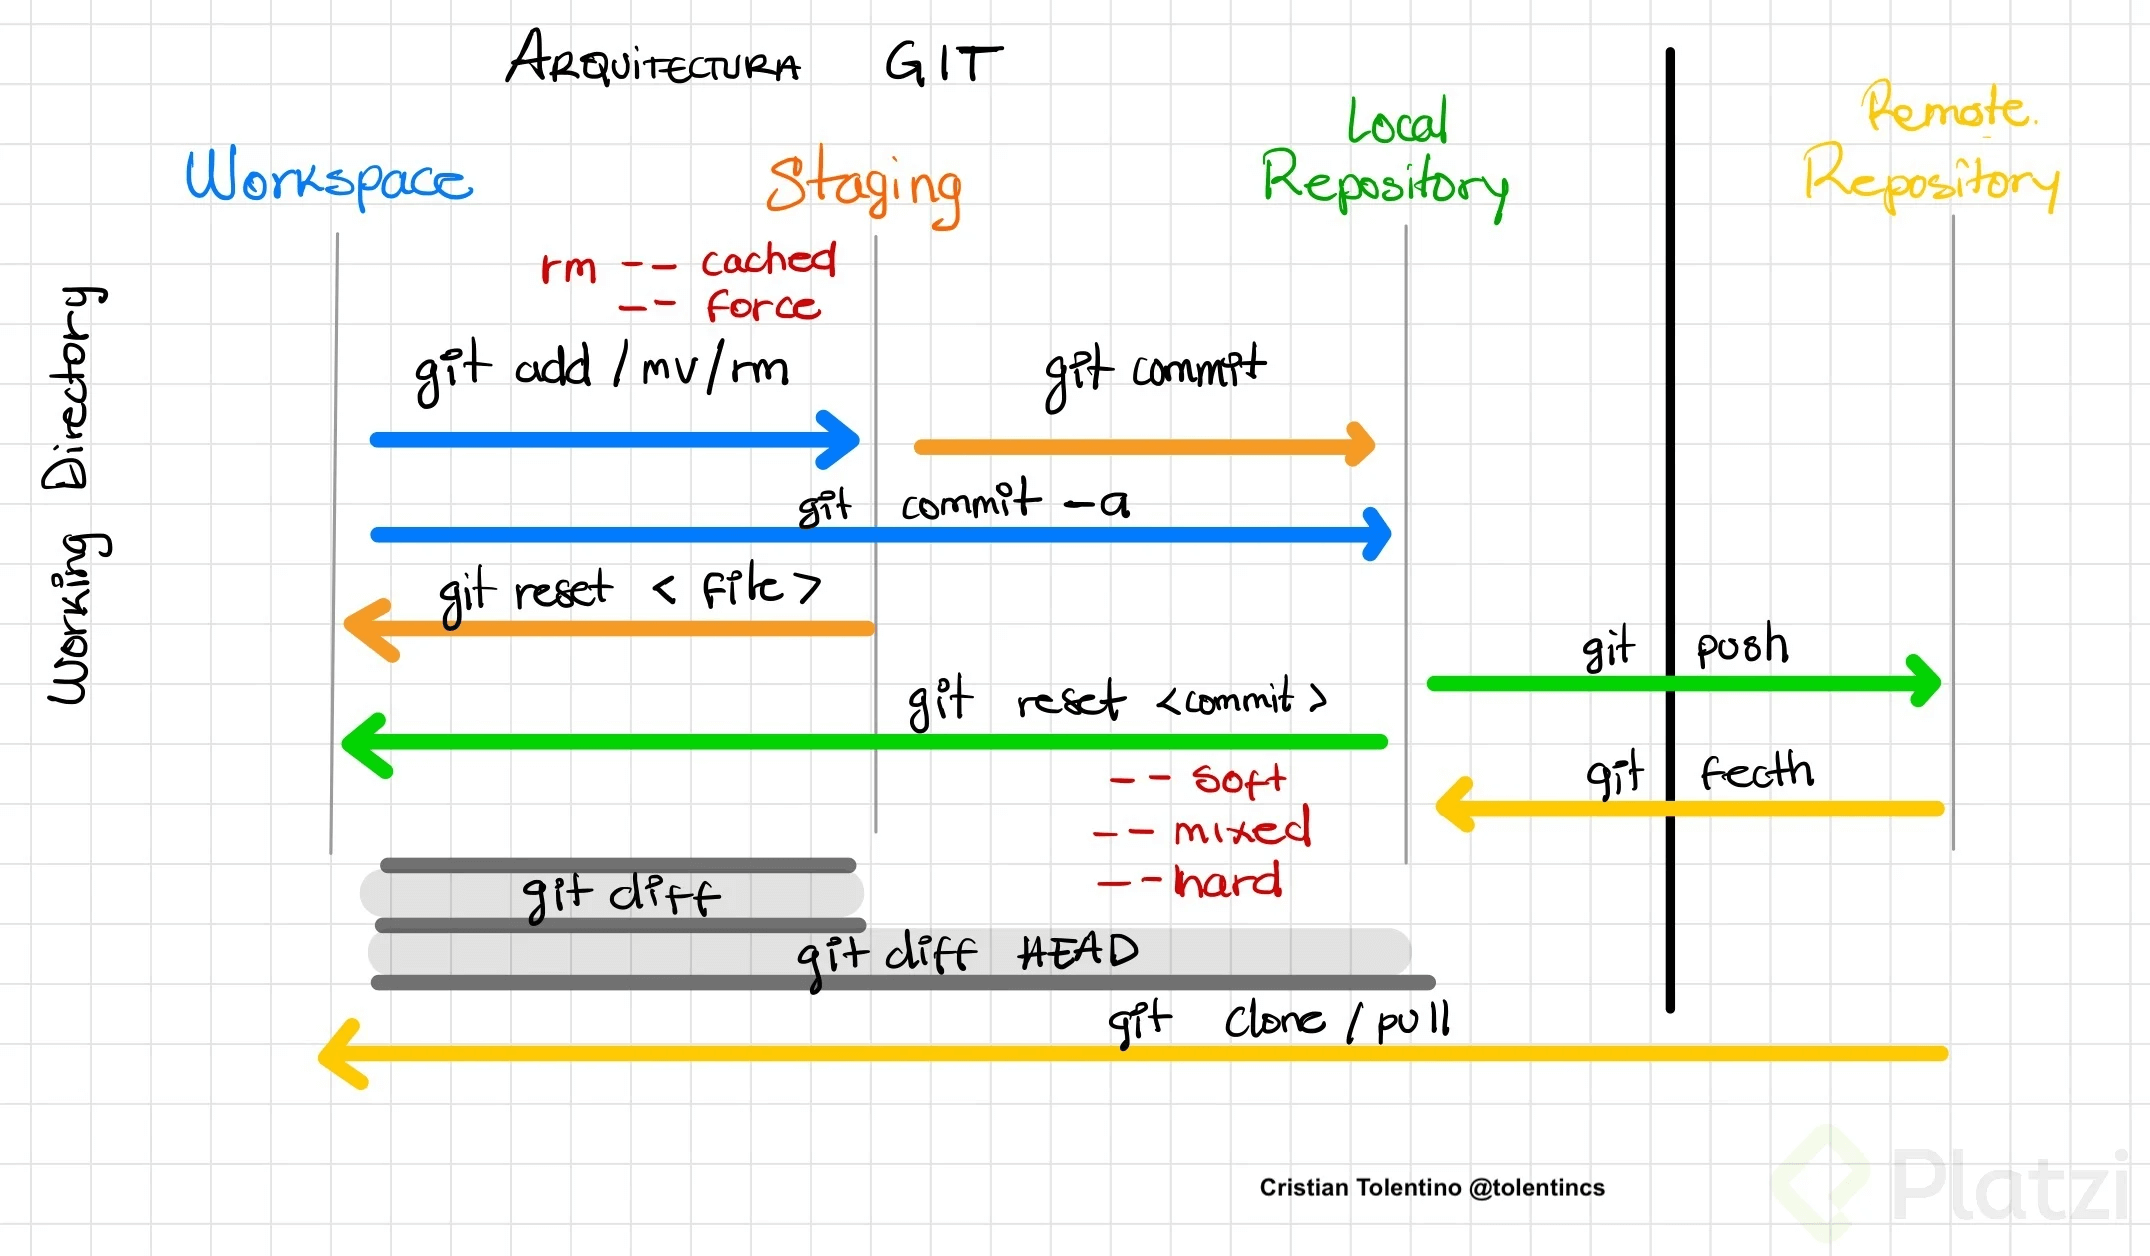 ARQUITECTURA GIT
Workspace
Staging
Local
Repository
Remote.
Repository
Working Directory
rm -- cached
-- force
git add / mv / rm
git commit
git commit -a
git reset < file >
git push
git reset <commit>
-- soft
-- mixed
-- hard
git fecth
git diff
git diff HEAD
git clone / pull
Cristian Tolentino @tolentincs
Platzi